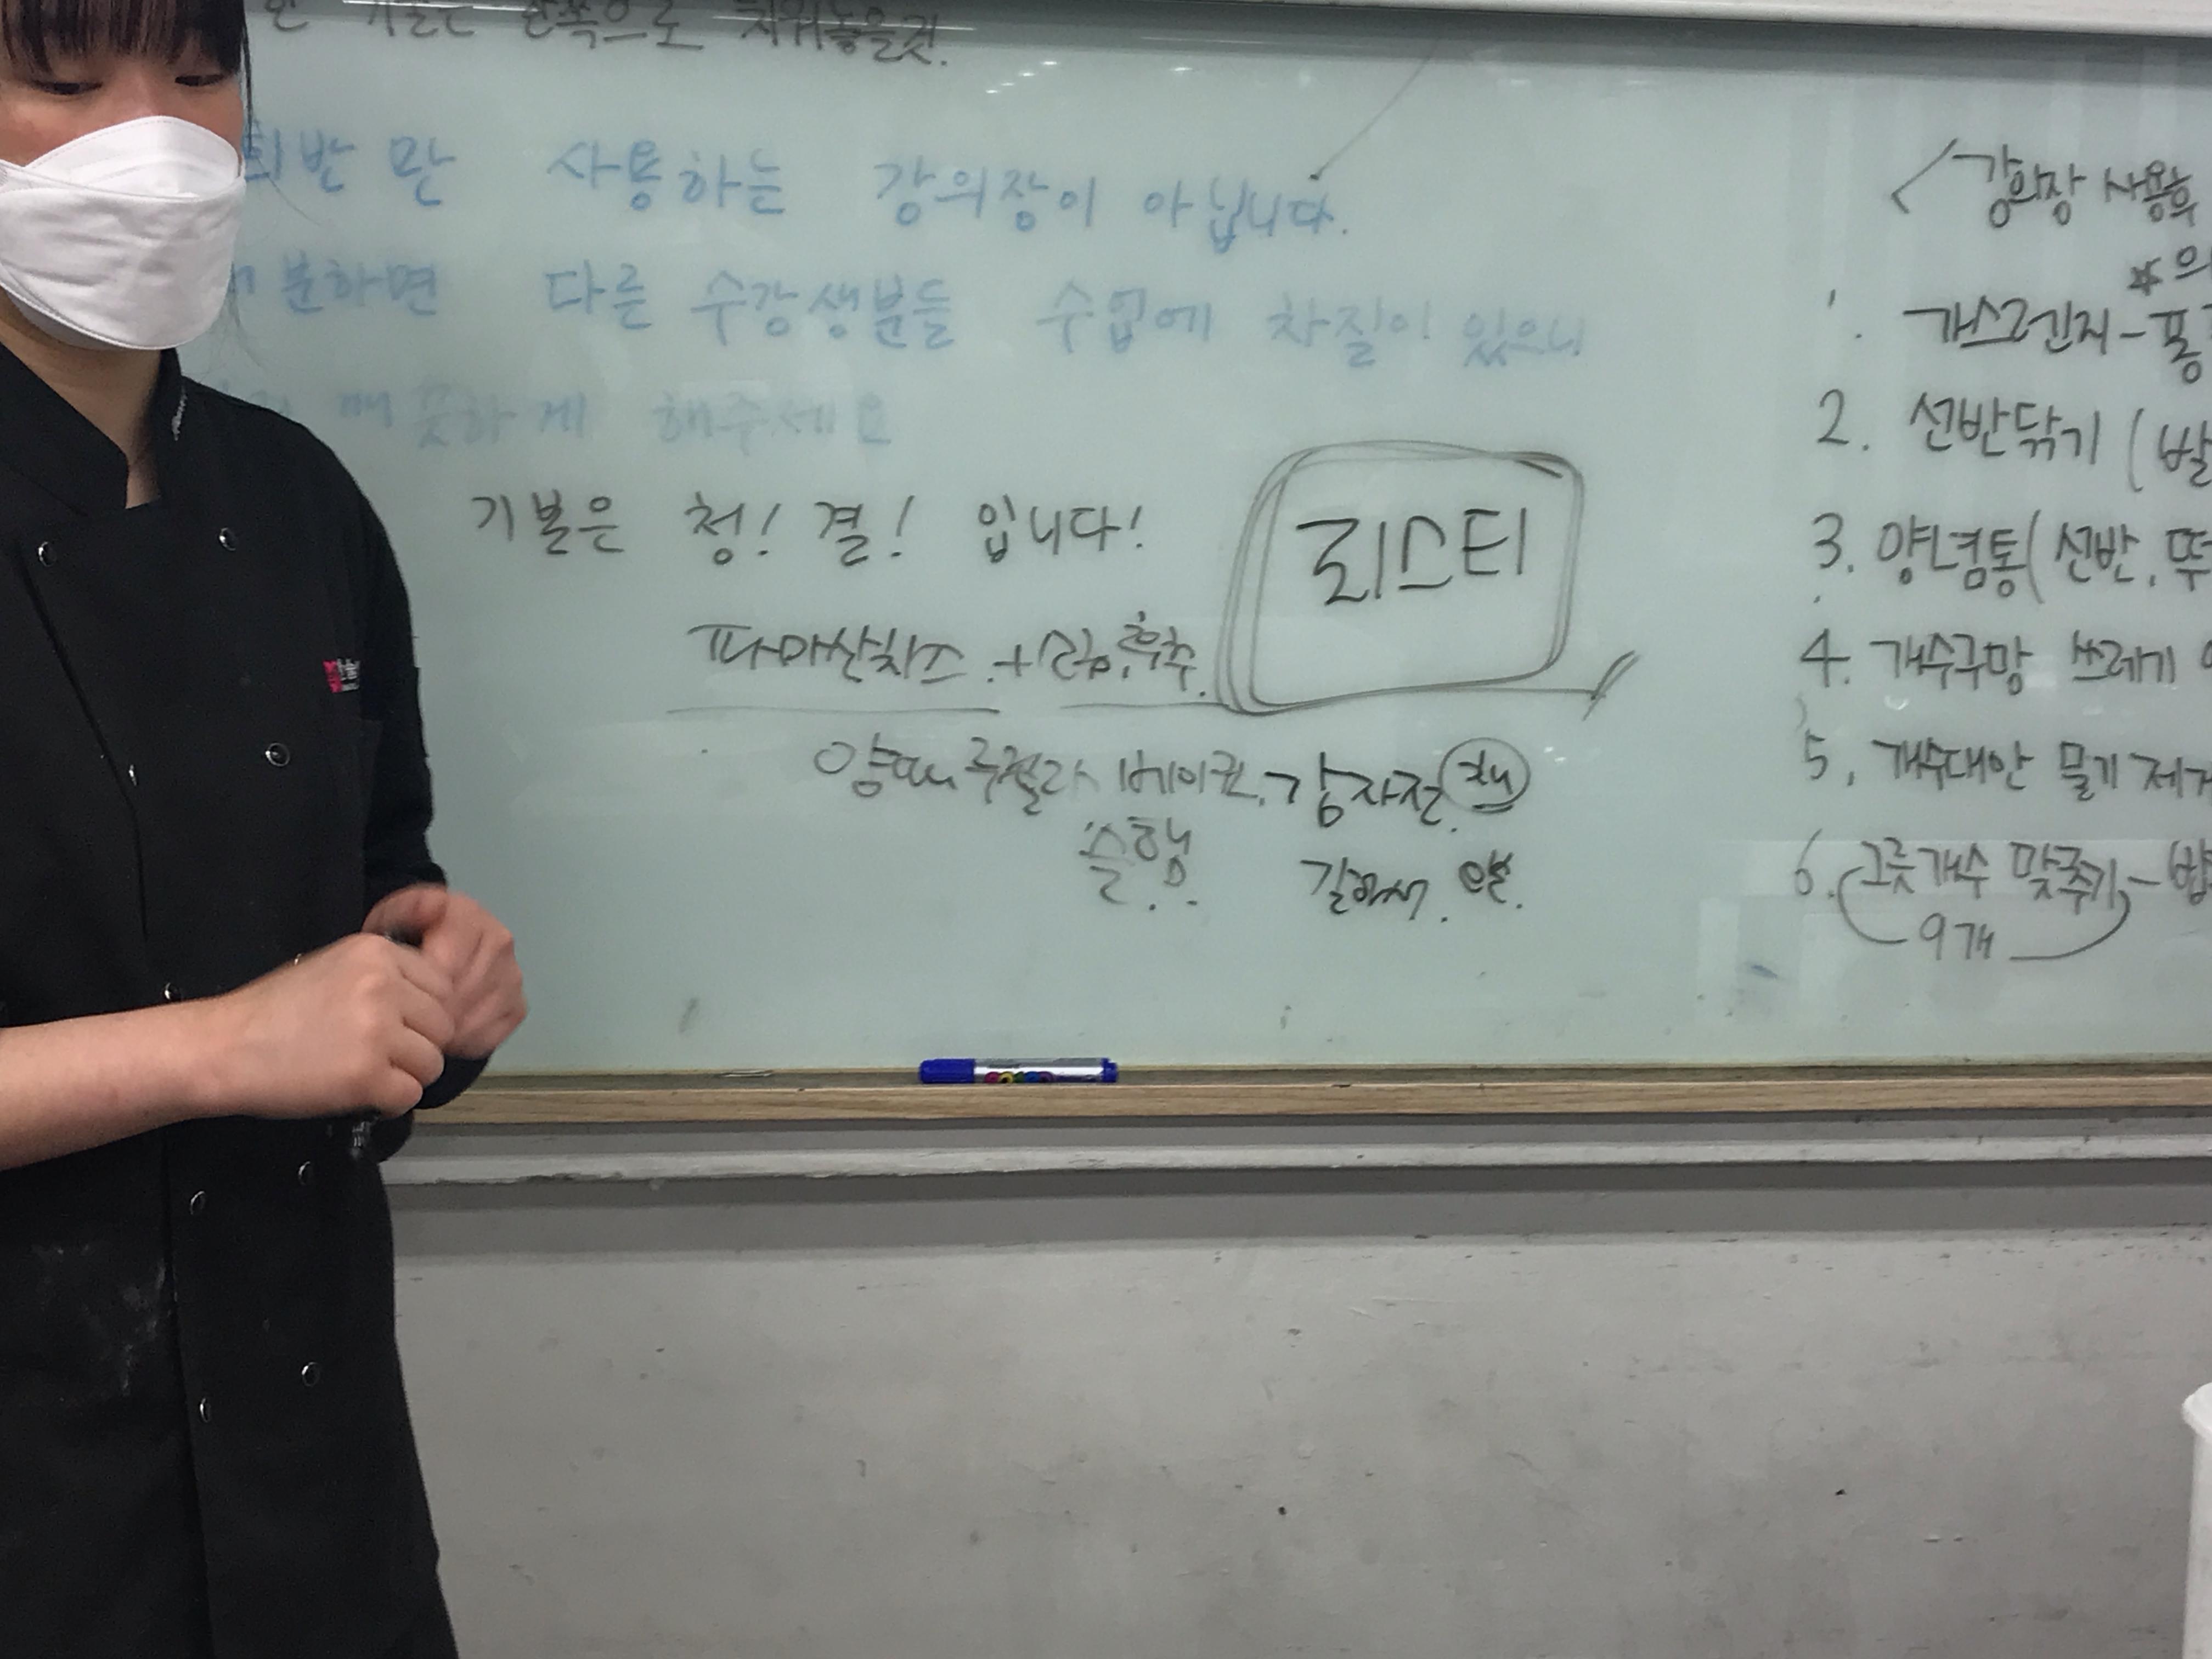 쪽으로 치워놓을것.
반 만 사용하는 강의장이 아닙니다.
분하면 다른 수강생분들 수업에 차질이 있으니
깨끗하게 해주세요
기본은 청! 결! 입니다!
리스티
파마산치즈 + 소금, 후추.
양파 루꼴라 베이컨. 감자전. 채
슬햄.. 길이 .
<강의장 사용후
* 의
1. 가스렌지 - 퐁
2. 선반닦기 (발
3. 양념통 (선반,
4. 개수구망 쓰레기
5. 개수대안 물기 제거
6. 그릇개수 맞추기 -
9개